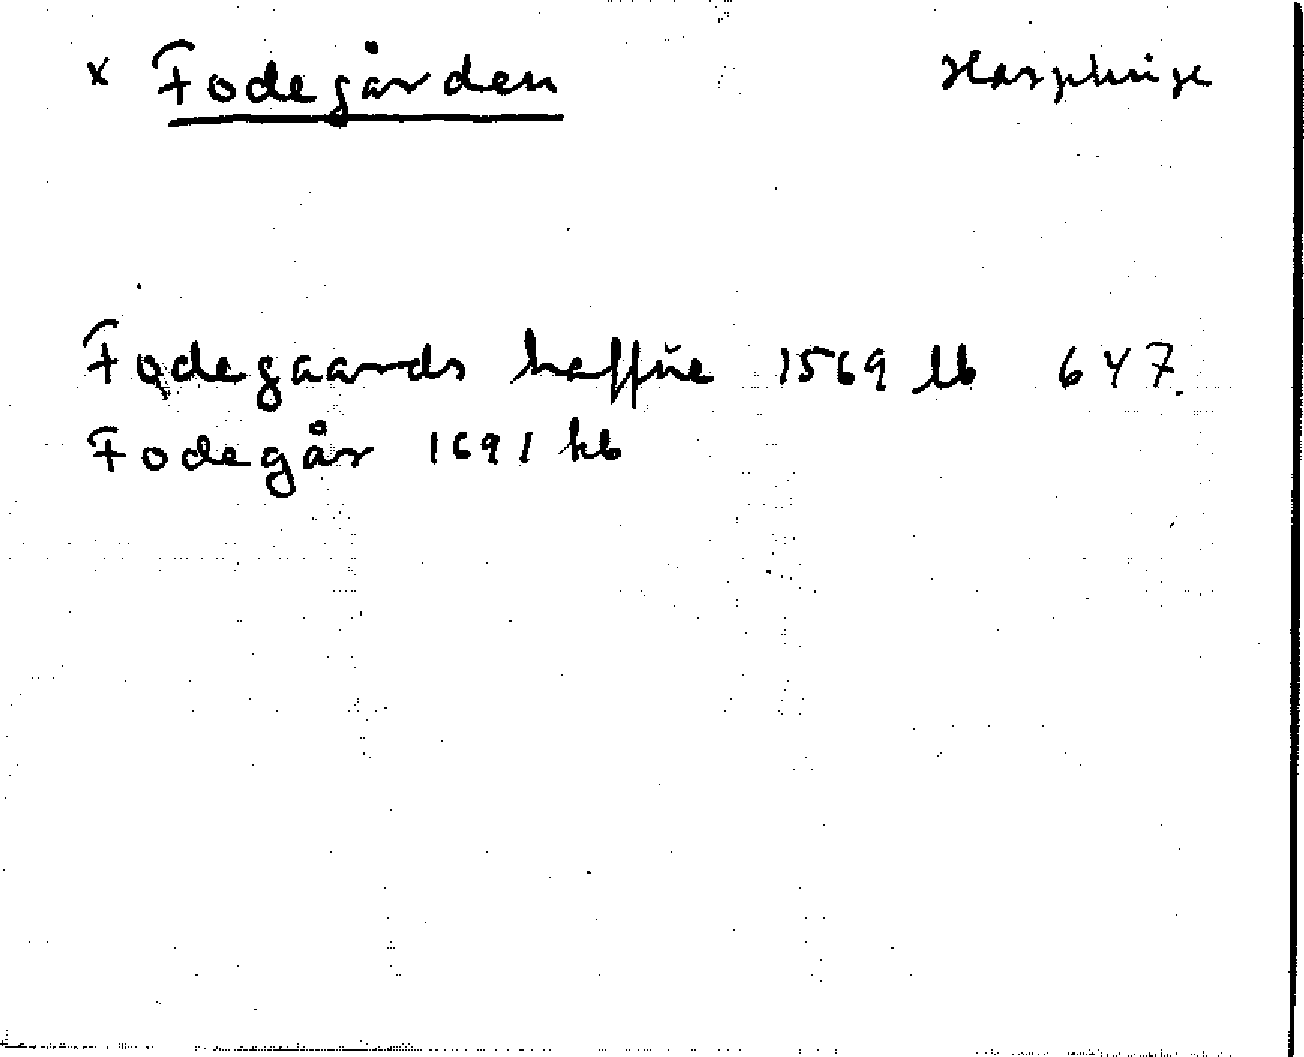 x Fodegården Harplinge
Fodegaards haffue 1569 lb 647.
Fodegår 1691 kb